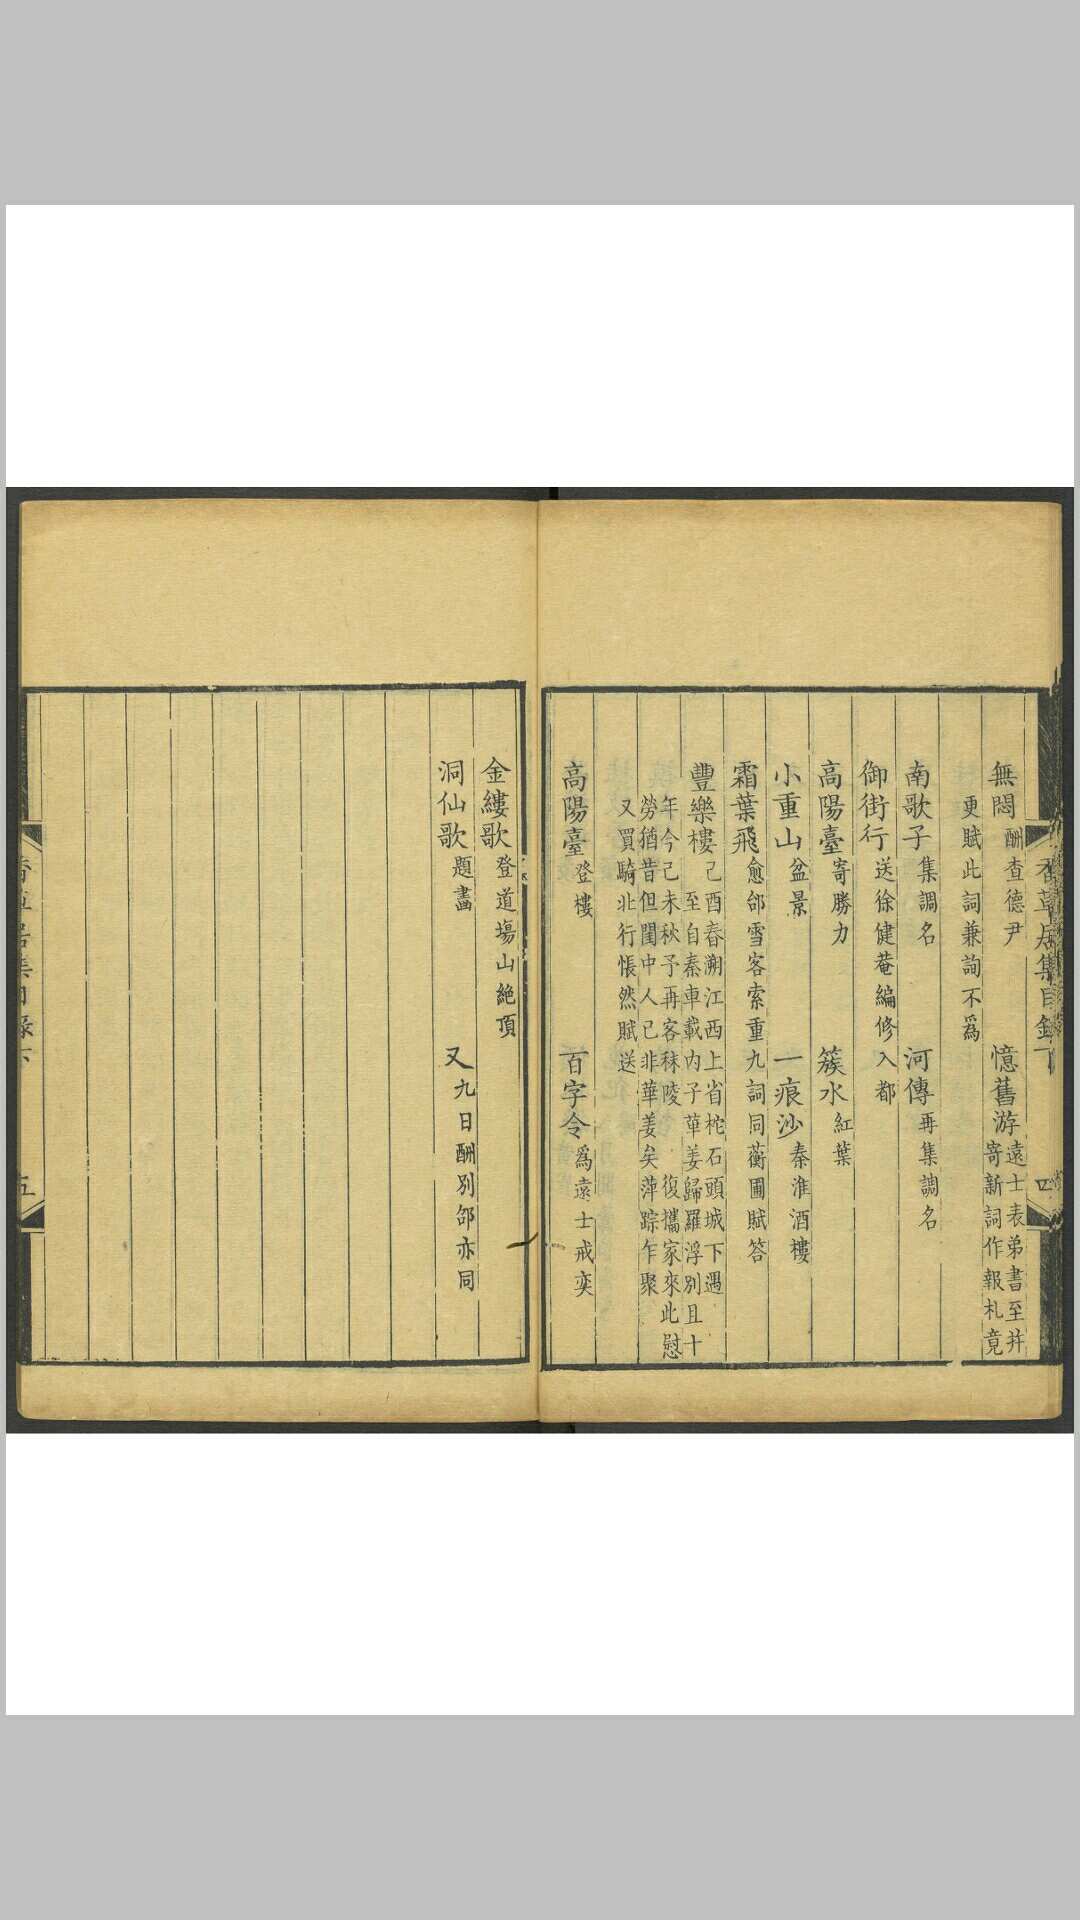 香草居集目錄下 四
無悶酬查德尹 憶舊游遠士表弟書至并寄新詞作報札竟
更賦此詞兼詢不爲
南歌子集調名 河傳再集調名
御街行送徐健菴編修入都
高陽臺寄勝力 簇水紅葉
小重山盆景 一痕沙秦淮酒樓
霜葉飛愈郃雪客索重九詞同蘅圃賦答
豐樂樓己酉春溯江西上省柁石頭城下遇至自秦車載內子華姜歸羅浮別且十
年今己未秋予再客秣陵復攜家來此慰勞猶昔但閨中人已非華姜矣萍踪乍聚
又買騎北行悵然賦送
高陽臺登樓 百字令爲遠士戒奕
金縷歌登道塲山絶頂
洞仙歌題畵 又九日酬別郃亦同
五